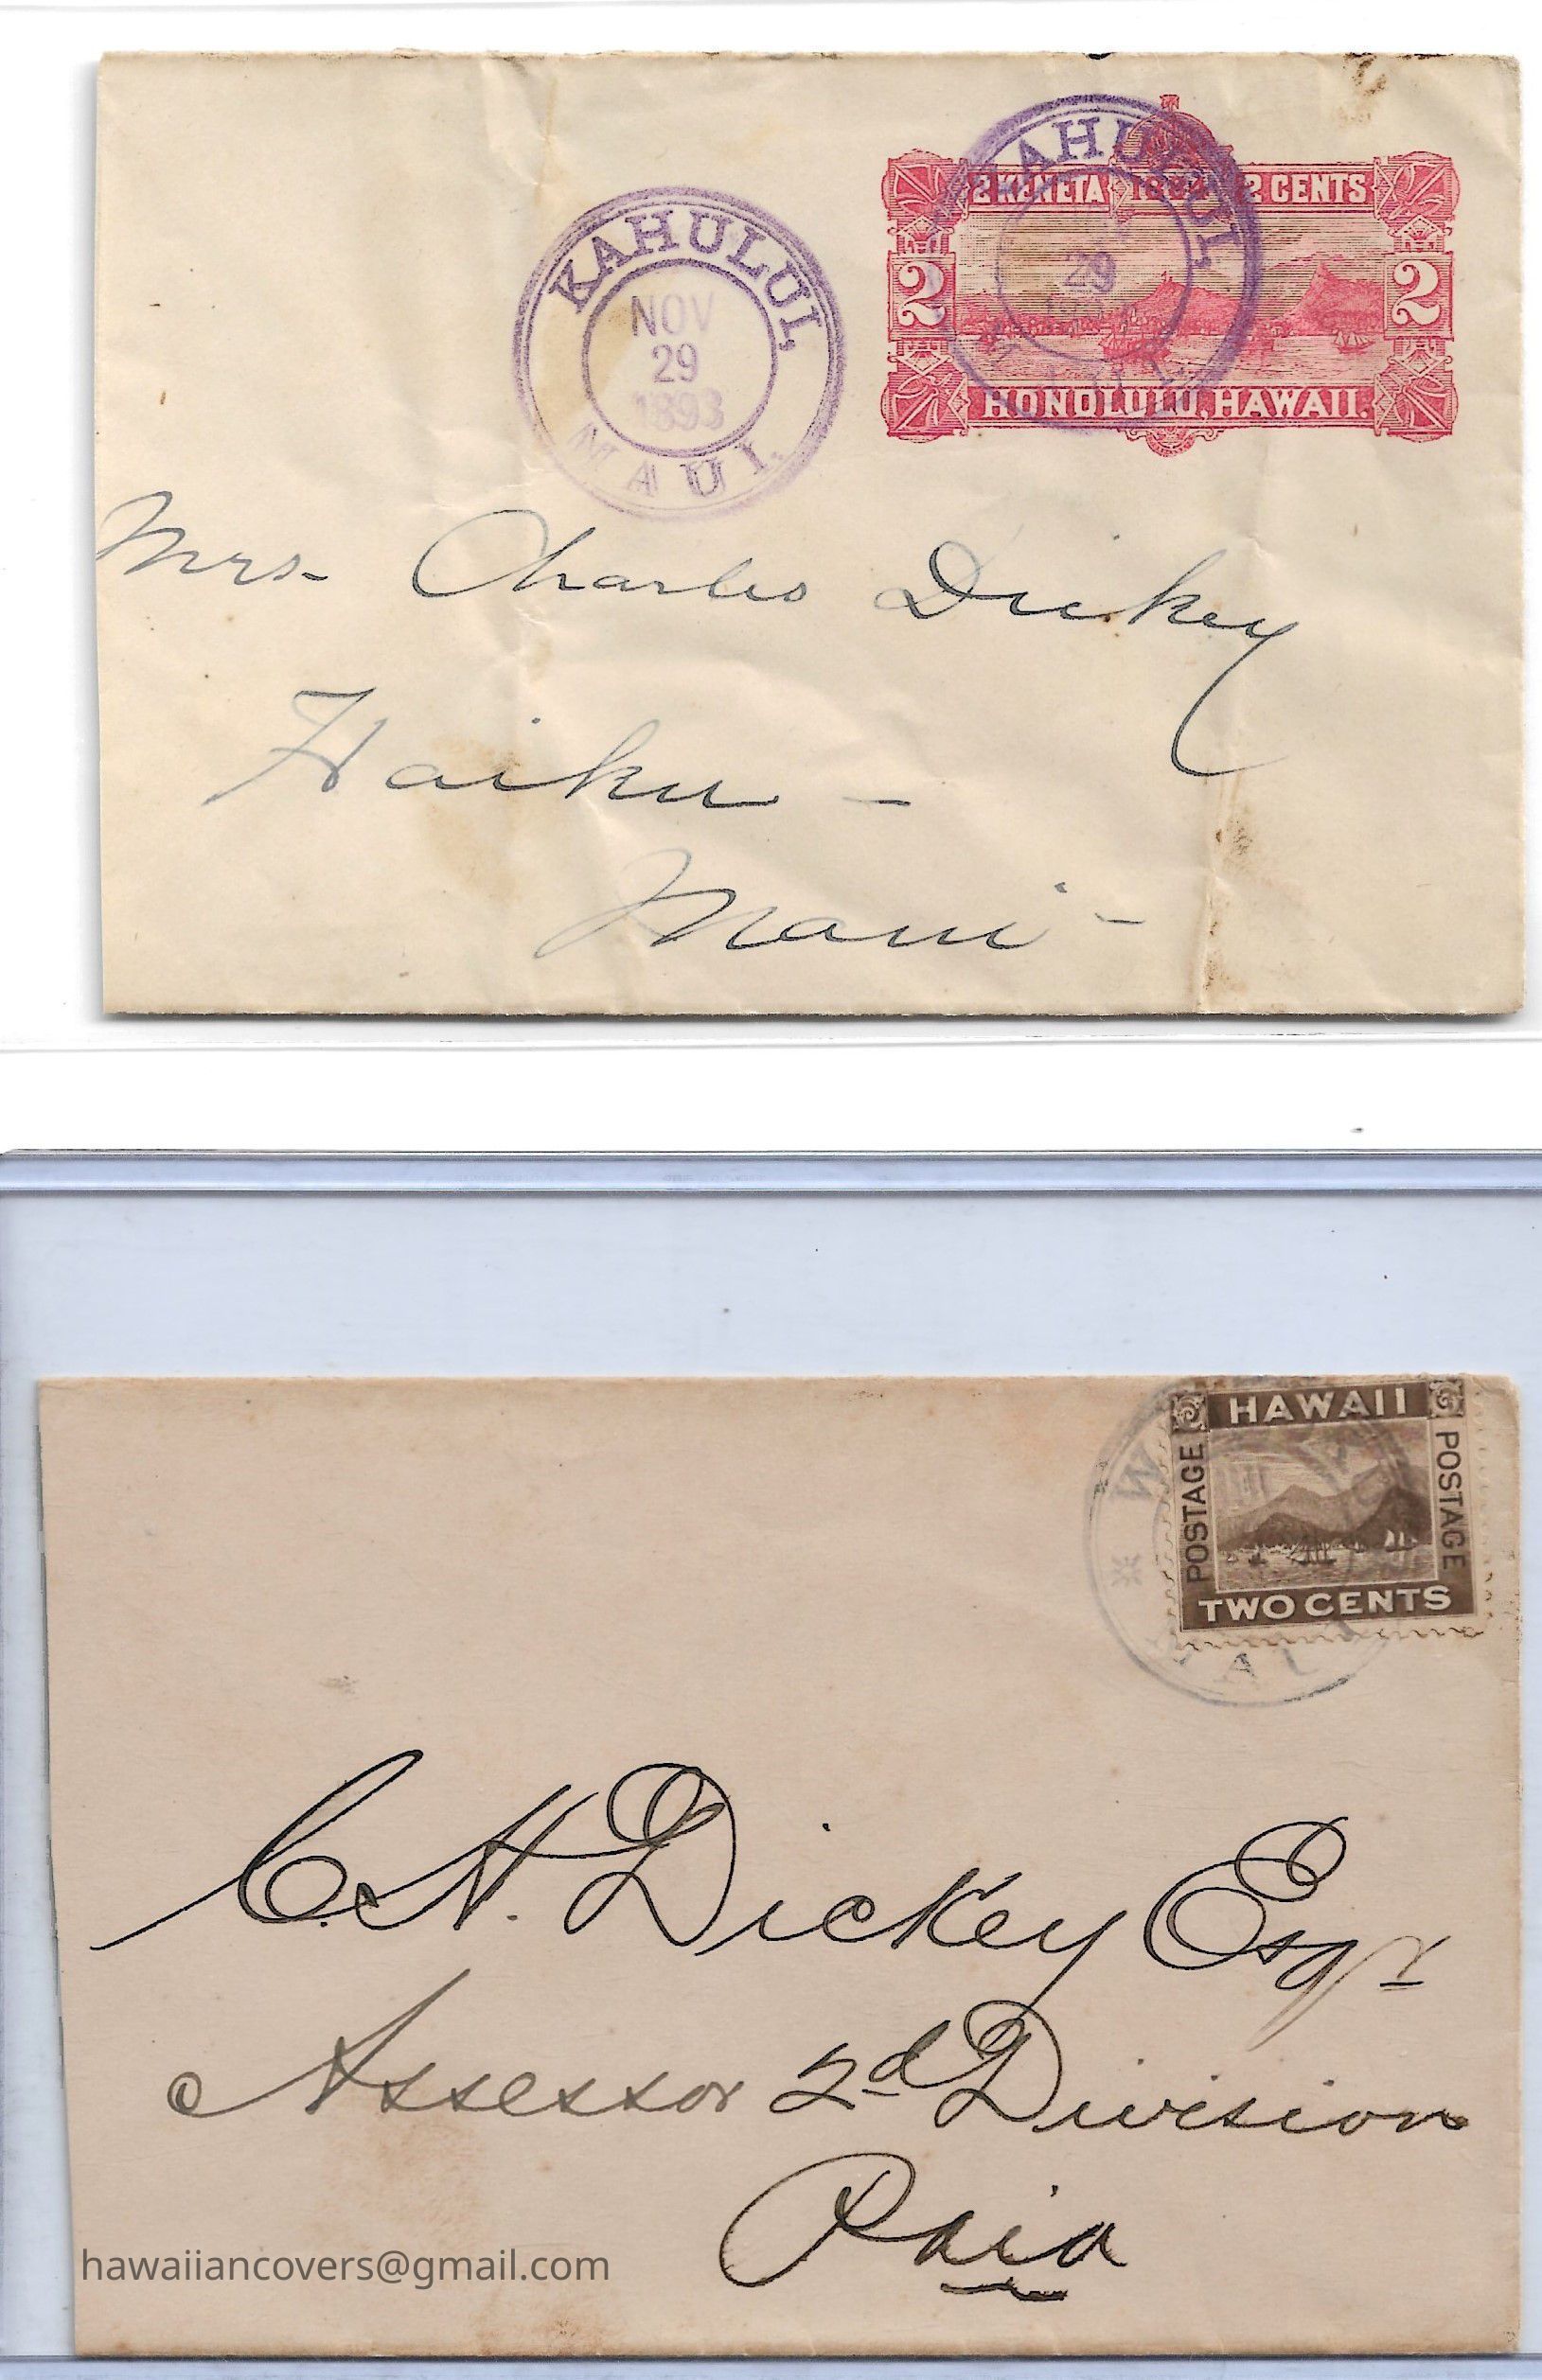 KAHULUI,
NOV
29
1893
MAUI.
KAHULUI,
29
2 KENETA 1884 2 CENTS
2 2
HONOLULU, HAWAII.
Mrs- Charles Dickey
Haiku -
Maui -
HAWAII
POSTAGE
POSTAGE
TWO CENTS
C. H. Dickey Esqr
Assessor 2d Division
Paia
hawaiiancovers@gmail.com